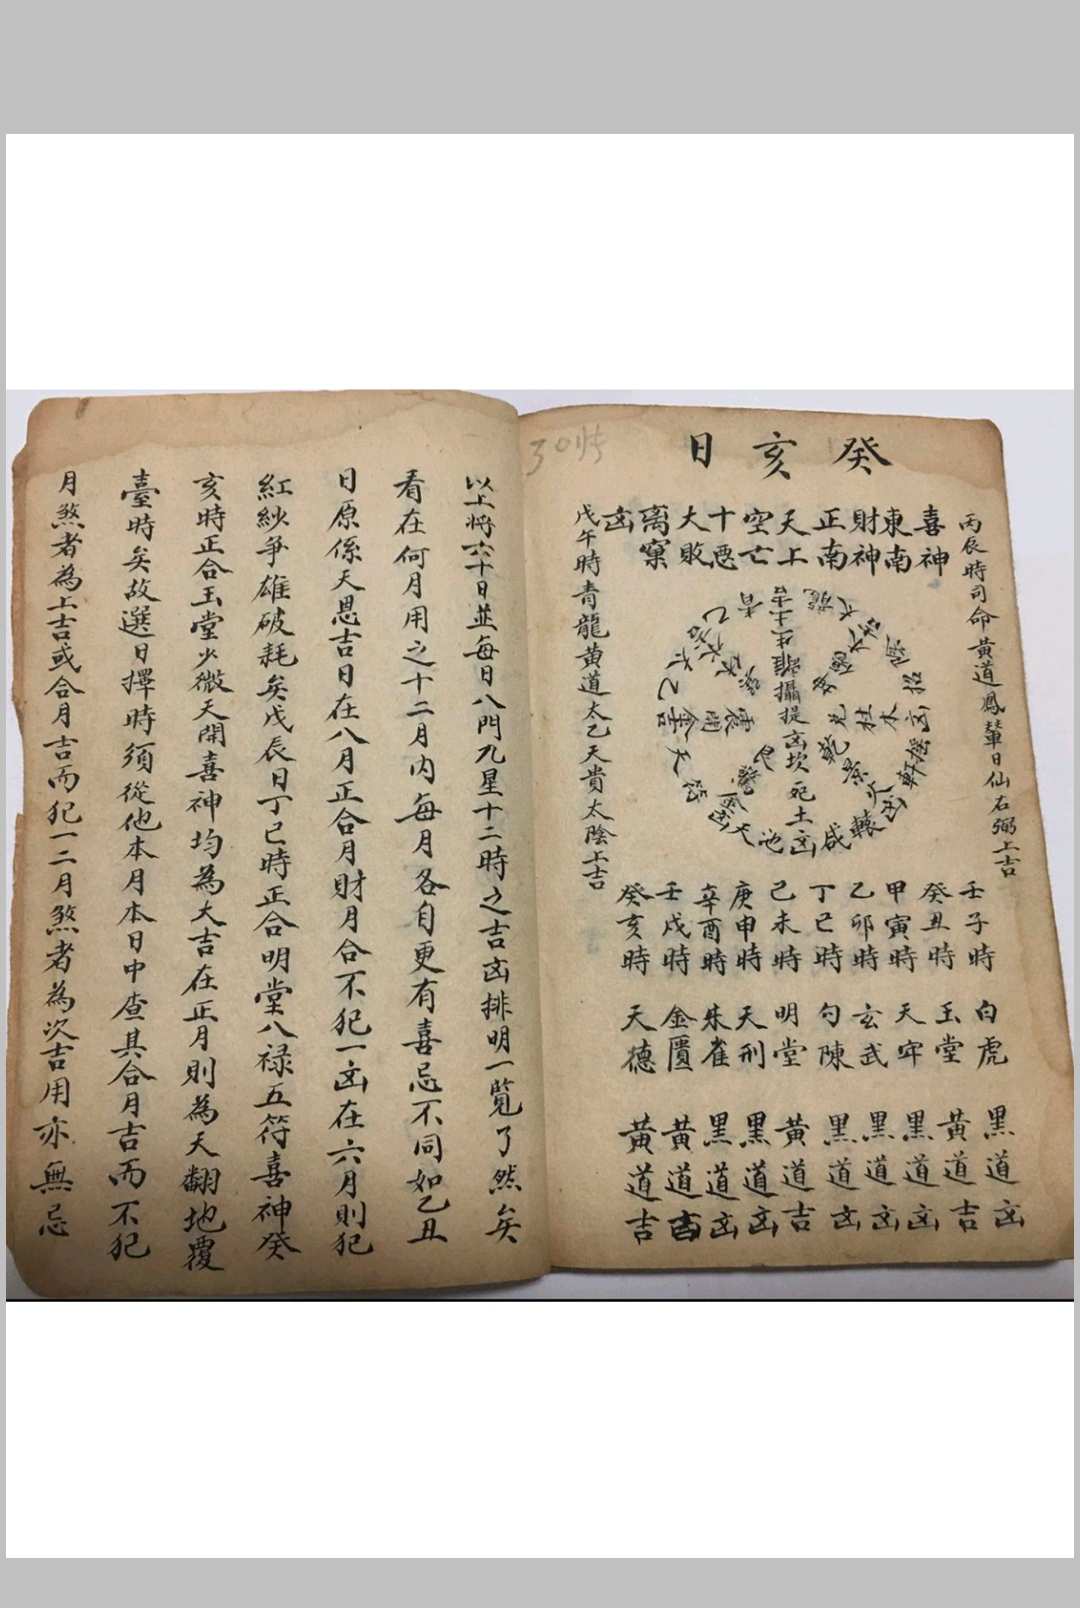 癸亥日
丙辰時司命黃道鳳輦日仙右弼上吉
喜神東南
財神正南
天上空亡
十惡大敗
离窠凶
戊午時青龍黃道太乙天貴太陰上吉
攝提
凶坎死土凶
咸池
軒轅
招
天符
青龍
太乙
壬子時 白虎 黑道凶
癸丑時 玉堂 黃道吉
甲寅時 天牢 黑道凶
乙卯時 玄武 黑道凶
丁巳時 勾陳 黑道凶
己未時 明堂 黃道吉
庚申時 天刑 黑道凶
辛酉時 朱雀 黑道凶
壬戌時 金匱 黃道吉
癸亥時 天德 黃道吉
以上將六十日並每日八門九星十二時之吉凶排明一覧了然矣
看在何月用之十二月内每月各自更有喜忌不同如乙丑
日原係天恩吉日在八月正合月財月合不犯一凶在六月則犯
紅紗爭雄破耗矣戊辰日丁巳時正合明堂八祿五符喜神癸
亥時正合玉堂少微天開喜神均為大吉在正月則為天翻地覆
臺時矣故選日擇時須從他本月本日中查其合月吉而不犯
月煞者為上吉或合月吉而犯一二月煞者為次吉用亦無忌